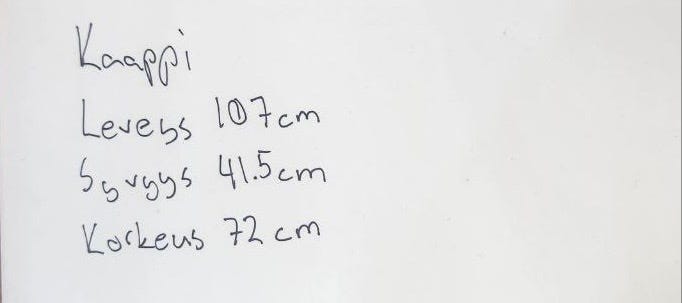 Kaappi
Leveys 107cm
Syvyys 41.5cm
Korkeus 72 cm